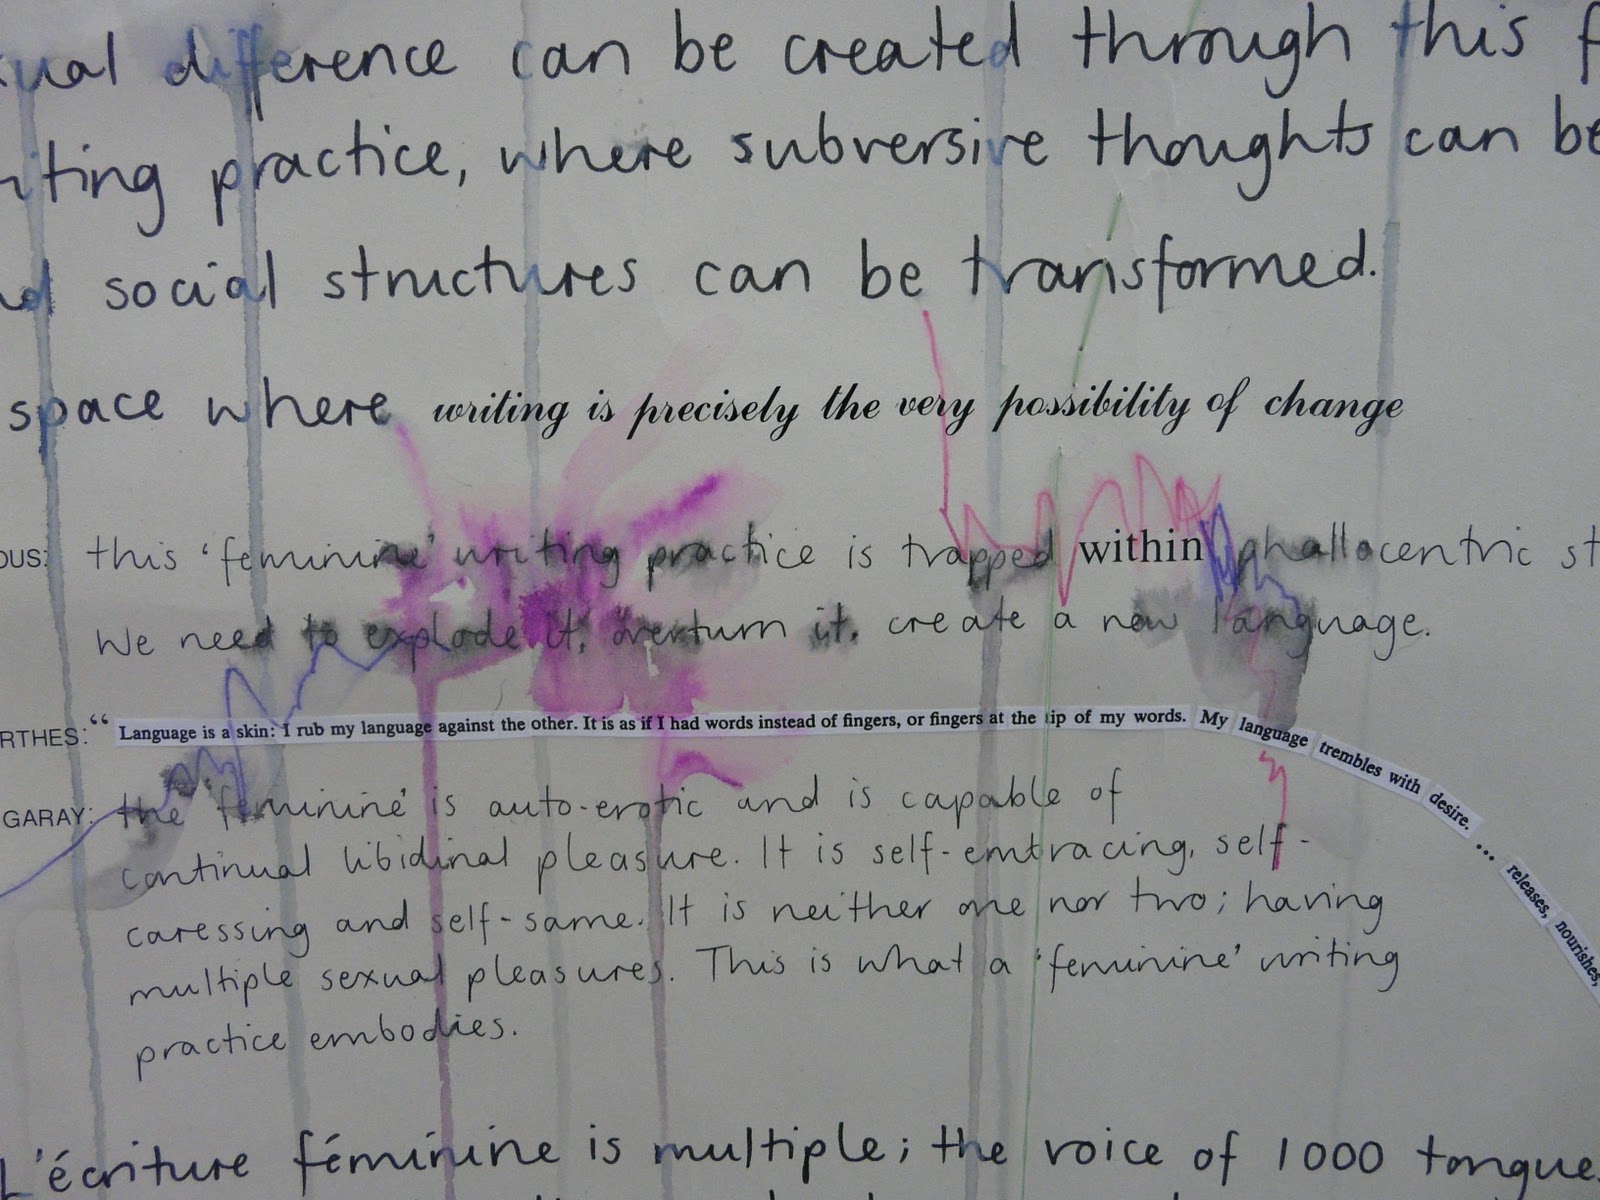 xual difference can be created through this f
riting practice, where subversive thoughts can be
nd social structures can be transformed.
space where writing is precisely the very possibility of change
OUS: this 'feminine' writing practice is trapped within phallocentric st
We need to explode it, overturn it, create a new language.
RTHES: “ Language is a skin: I rub my language against the other. It is as if I had words instead of fingers, or fingers at the tip of my words. My language trembles with desire. ... releases, nourishes,
GARAY: the 'feminine' is auto-erotic and is capable of
continual libidinal pleasure. It is self-embracing, self-
caressing and self-same. It is neither one nor two; having
multiple sexual pleasures. This is what a 'feminine' writing
practice embodies.
L'écriture féminine is multiple; the voice of 1000 tongue